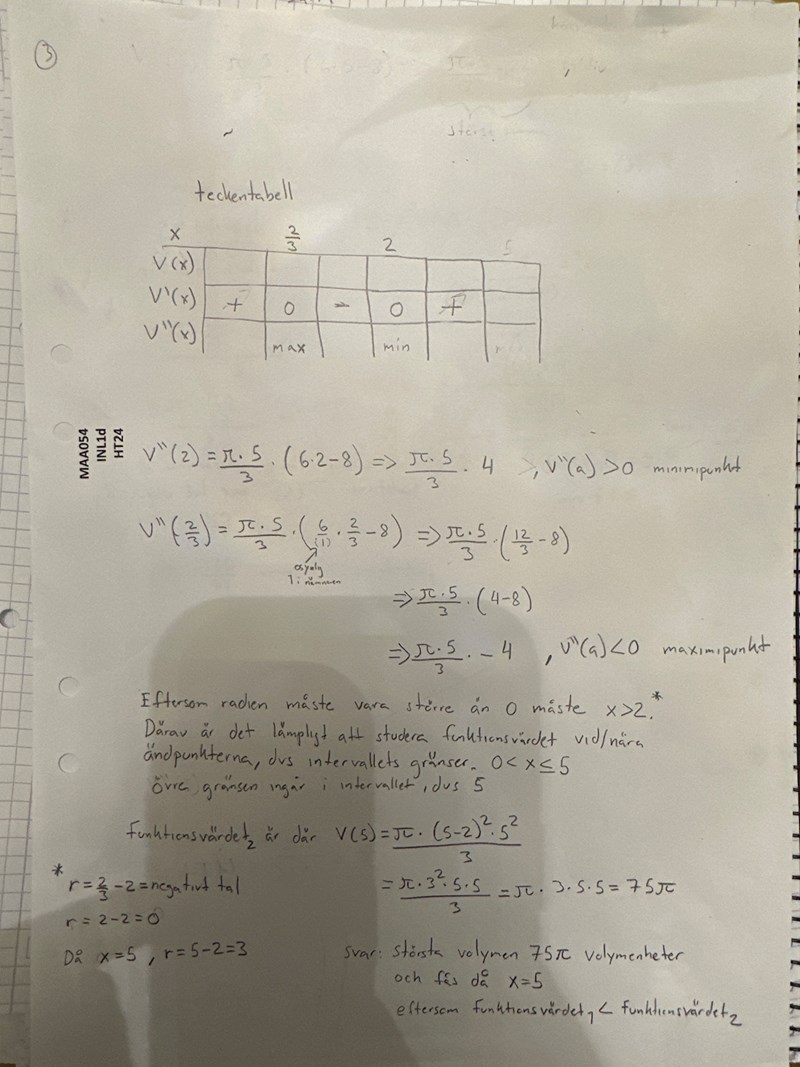 3
teckentabell
x 2/3 2 5
V(x)
V'(x) + 0 - 0 +
V''(x) max min
MAA054
INL1d
HT24
V''(2) = π·5/3 · (6·2-8) => π·5/3 · 4 , V''(a) > 0 minimipunkt
V''(2/3) = π·5/3 · (6/(1) · 2/3 - 8) => π·5/3 · (12/3 - 8)
osynlig
1 i nämnaren
=> π·5/3 · (4-8)
=> π·5/3 · -4 , V''(a) < 0 maximipunkt
Eftersom radien måste vara större än 0 måste x>2.*
Därav är det lämpligt att studera funktionsvärdet vid/nära
ändpunkterna, dvs intervallets gränser. 0 < x ≤ 5
övre gränsen ingår i intervallet, dvs 5
Funktionsvärdet₂ är där V(5) = π·(5-2)²·5²/3
= π·3²·5·5/3 = π·3·5·5 = 75π
* r = 2/3 - 2 = negativt tal
r = 2-2 = 0
Då x=5, r=5-2=3
svar: största volymen 75π volymenheter
och fås då x=5
eftersom funktionsvärdet₁ < funktionsvärdet₂